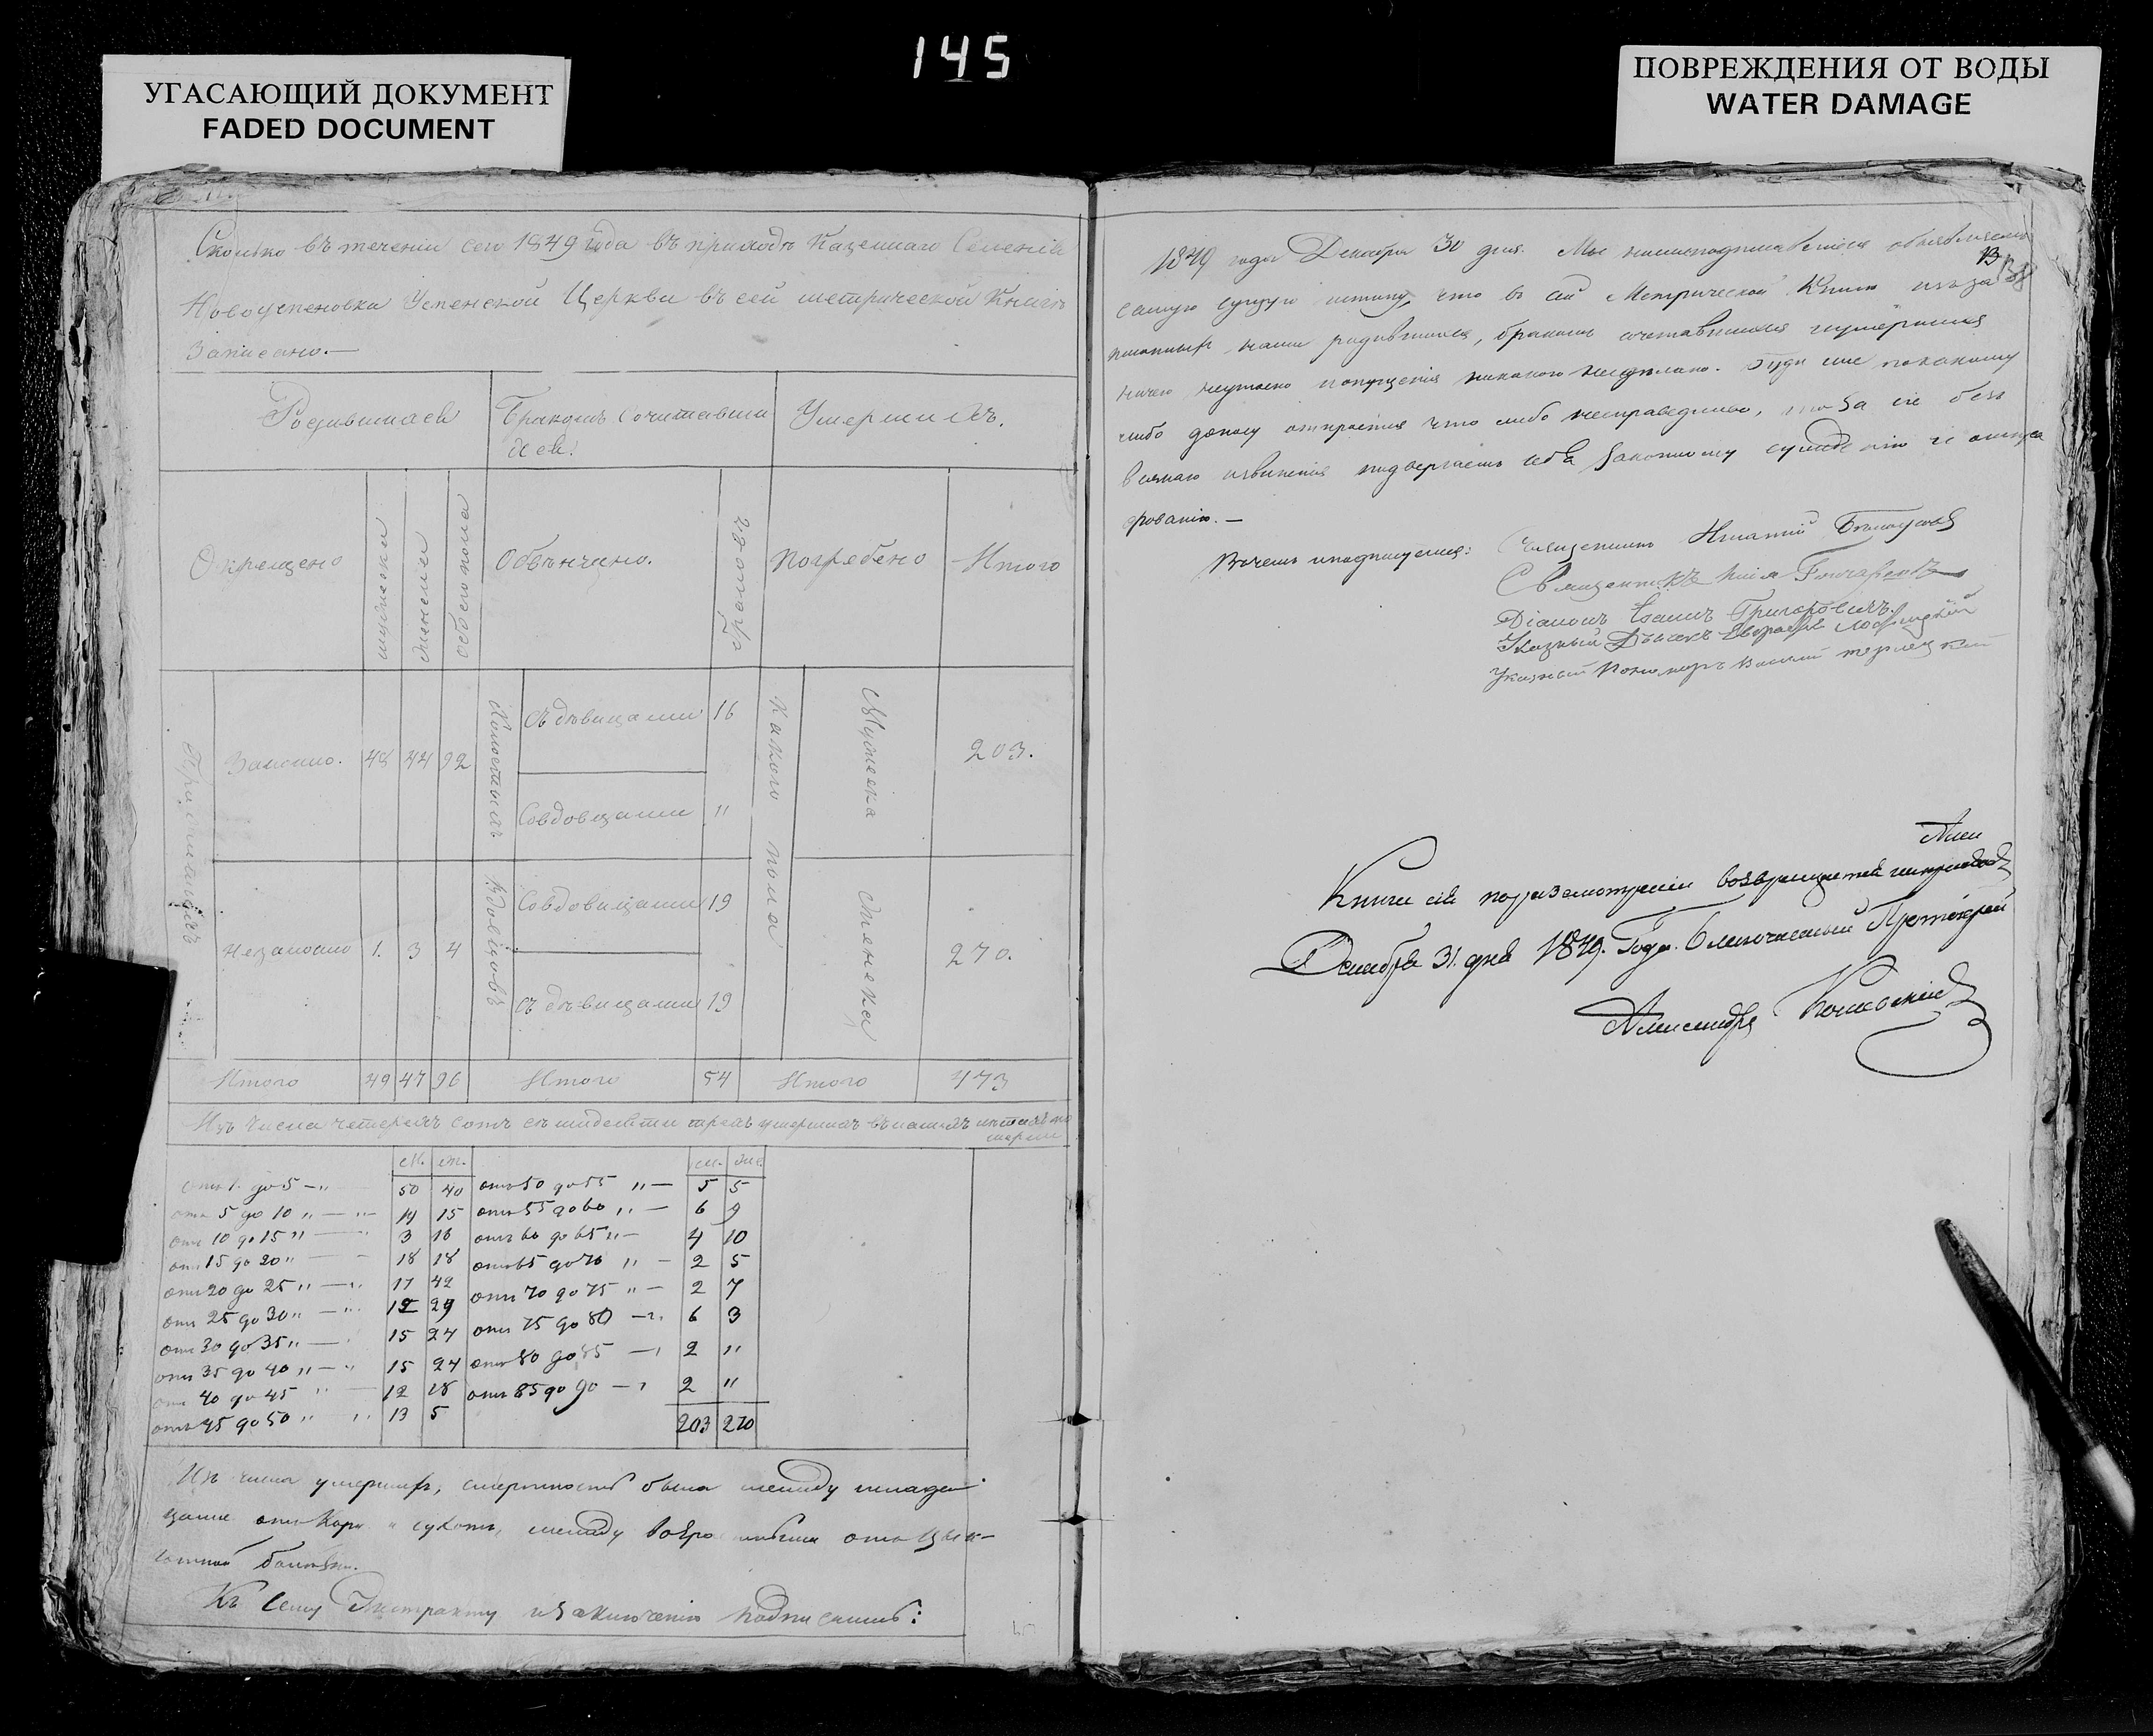 145
УГАСАЮЩИЙ ДОКУМЕНТ
FADED DOCUMENT
ПОВРЕЖДЕНИЯ ОТ ВОДЫ
WATER DAMAGE
Сколько въ теченіи сего 1849 года въ приходѣ Казеннаго Селенія
Новоуспеновка Успенской Церкви въ сей метрической Книгѣ
Записано.—
Родившихся
Бракомъ Сочитавши
хся.
Умершихъ.
Окрещено
мужеска
женска
обоего пола
Обвѣнчено.
браковъ
Погребено
Итого
Законно. 48 44 92
Холостыхъ
Съ дѣвицами 16
Совдовицами "
Какого пола
Мужеска
203.
Незаконно 1. 3 4
Вдовцовъ
Совдовицами 19
Съ дѣвицами 19
Женска
270.
Итого 49 47 96 Итого 54 Итого 473
Изъ Числа четерехъ сотъ семидесяти трехъ умершихъ въ какихъ
м. ж. м. ж.
от 1. до 5 —" 50 40 от 50 до 55 " — 5 5
от 5 до 10 " — " 19 15 от 55 до 60 " — 6 9
от 10 до 15 " — 3 16 отъ 60 до 65 " — 4 10
от 15 до 20 " — 18 18 от 65 до 70 " — 2 5
от 20 до 25 " — " 17 42 от 70 до 75 " — 2 7
от 25 до 30 " — " 12 29 от 75 до 80 — " 6 3
от 30 до 35 " — 15 24 от 80 до 85 — " 2 "
от 35 до 40 " — " 15 24 от 85 до 90 — " 2 "
от 40 до 45 " — 12 18
отъ 45 до 50 " " 13 5 203 270
Изъ числа умершихъ, смертность была между младен
цами от Кори и сухотъ, между
болезни.
Къ Сему Экстракту и заключенію подписались:
1849 года Декабря 30 дня. Мы нижеподписавшіеся объявляемъ
самую сущую истину, что въ сей Метрической Книге изъ за
писанныхъ нами родившихся, бракомъ сочетавшихся и умершихъ
ничего неутаено и опущенія никакого несделано. Буди же покакому
либо доносу откроется что либо несправедливо, то за сіе безъ
всякаго извиненія подвергаемъ себя законному сужденію и оштра
фованію.—
Вочемъ и подпишемся: Священникъ Игнатій
Священникъ
Діаконъ Іоаннъ Григоровичъ.
Указный Дьячекъ
Указный Пономарь Василій
Книга сія поразсмотреніи возвращается
Декабря 31. дня 1849. Года. Благочинный Протоіерей
Александръ